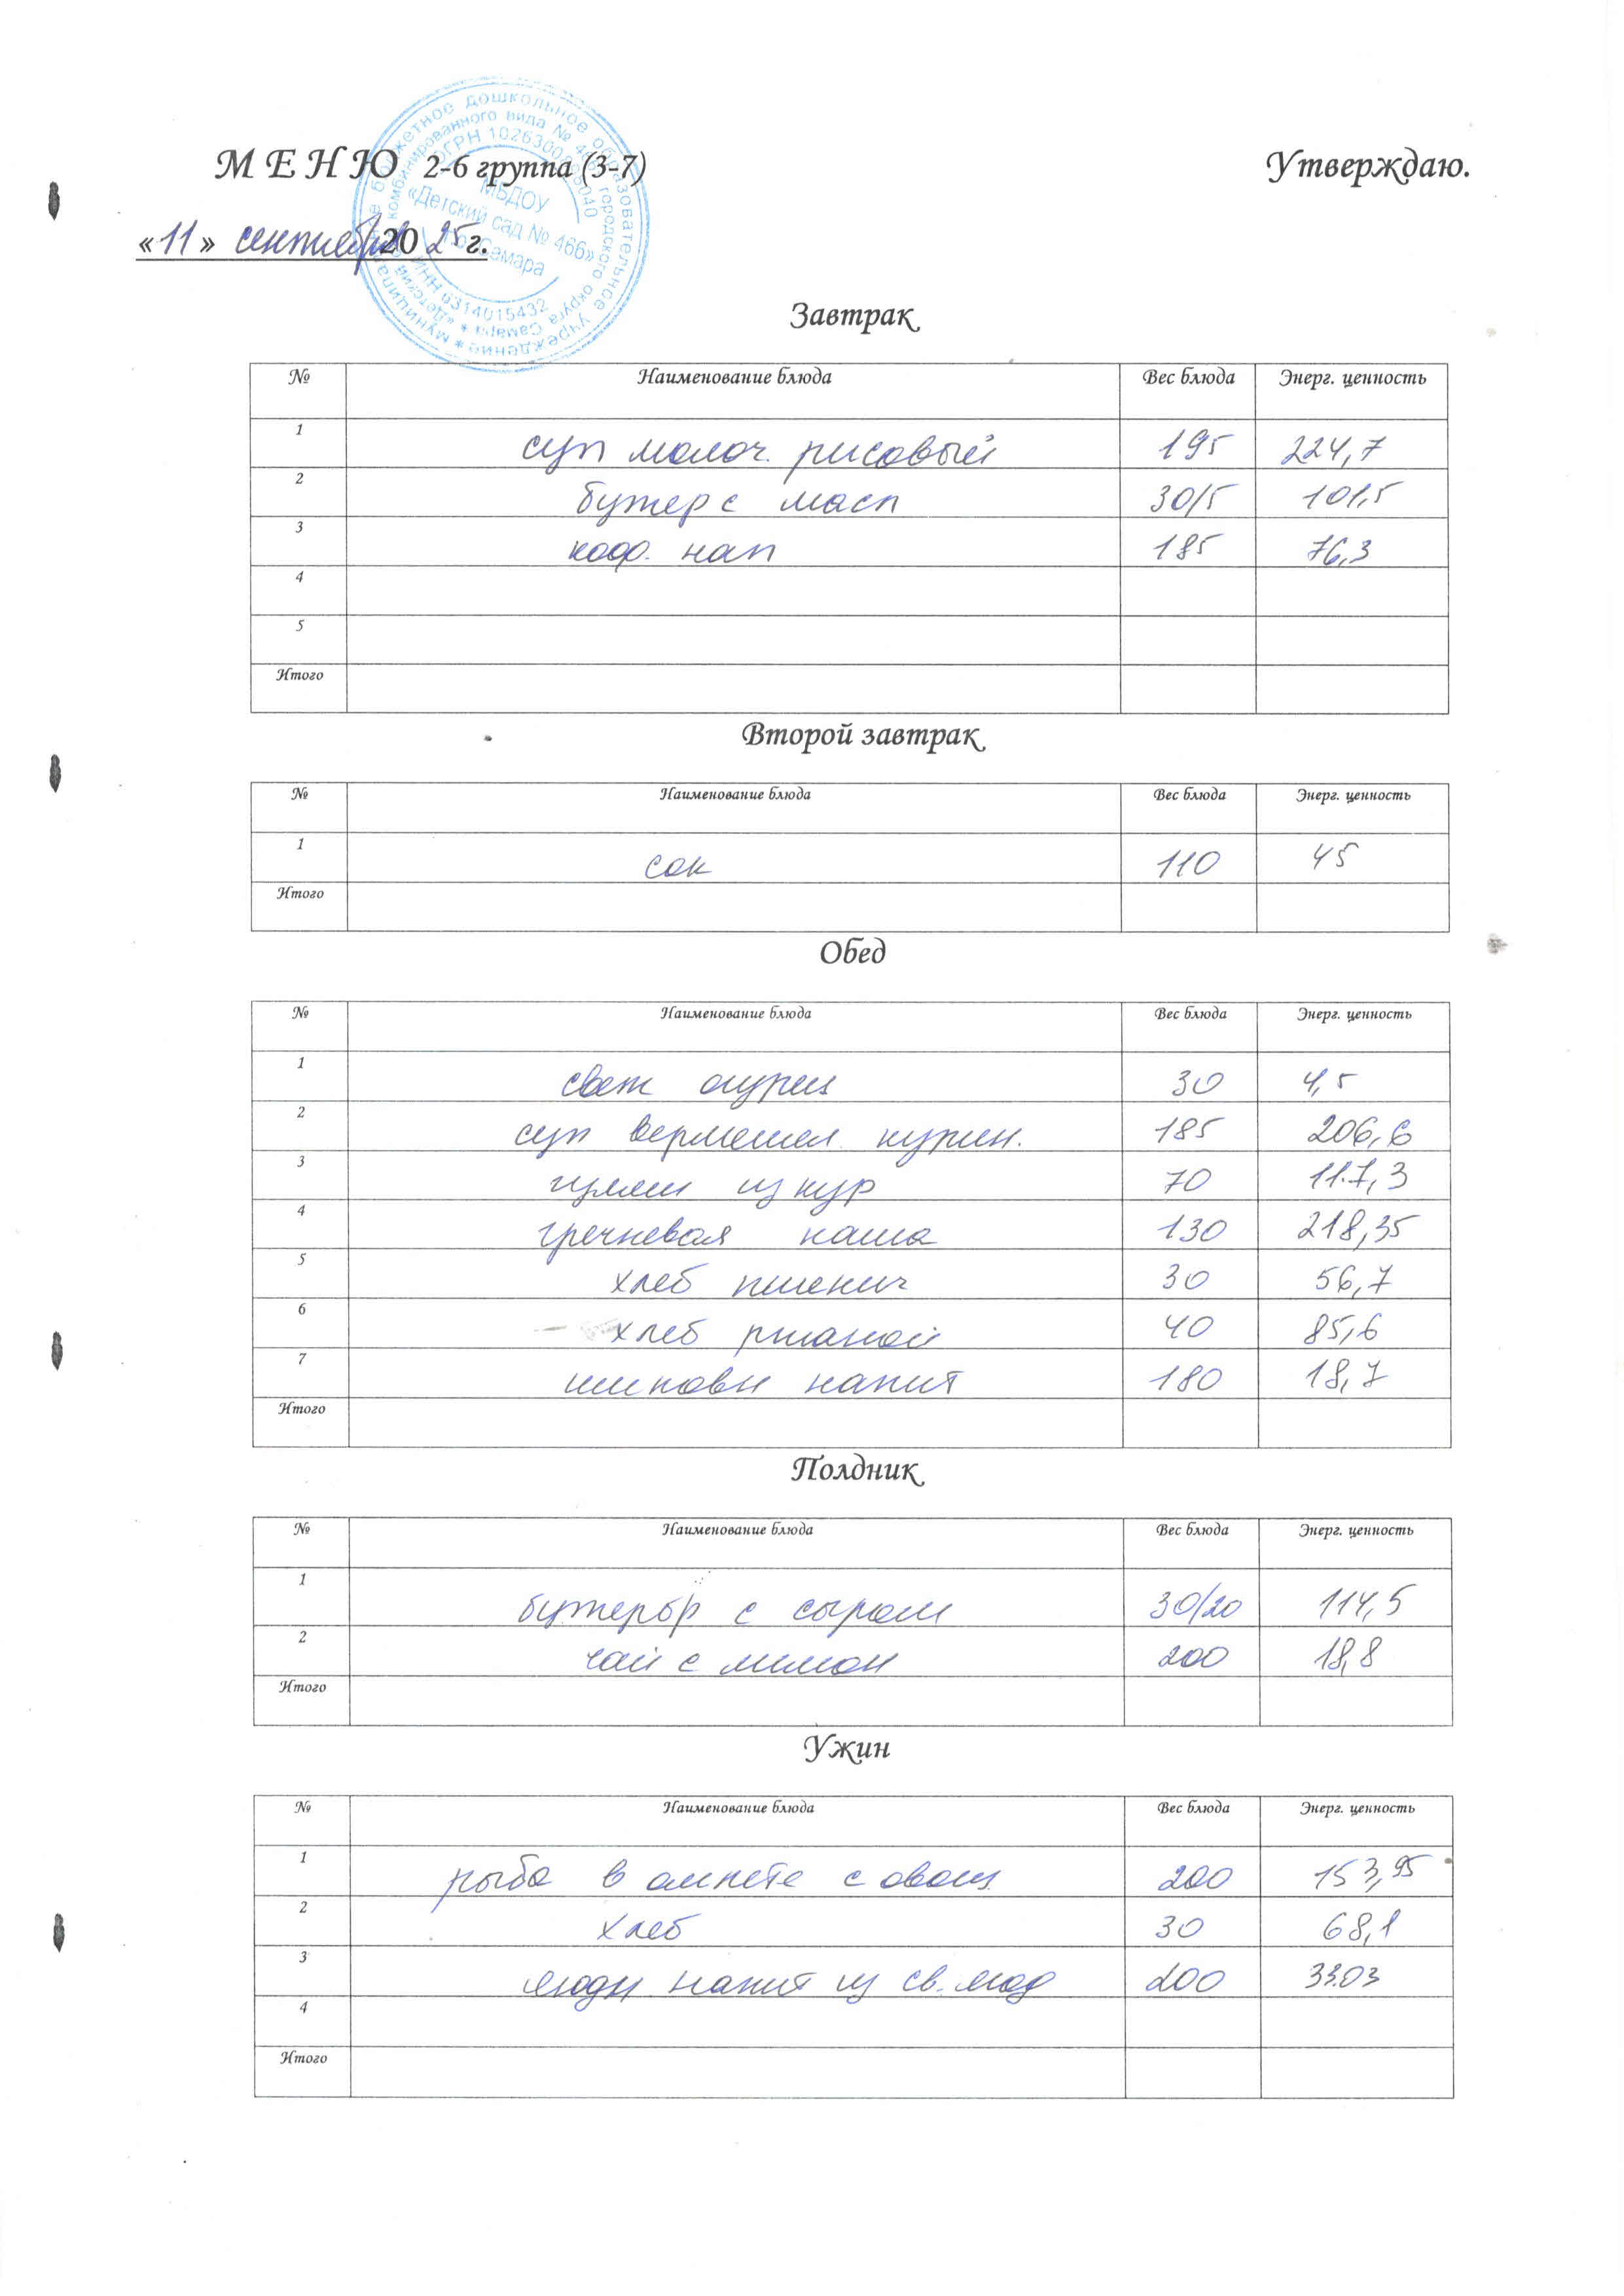 М Е Н Ю 2-6 группа (3-7) Утверждаю.
«11» сентября 2025г.
МБДОУ
«Детский сад № 466»
г.о. Самара
ИНН 6314015432
Завтрак
№ Наименование блюда Вес блюда Энерг. ценность
1 суп молоч. рисовый 195 224,7
2 бутер с масл 30/5 101,5
3 коф. нап 185 76,3
4
5
Итого
Второй завтрак
№ Наименование блюда Вес блюда Энерг. ценность
1 сок 110 45
Итого
Обед
№ Наименование блюда Вес блюда Энерг. ценность
1 свеж огурец 30 4,5
2 суп вермешел курин. 185 206,6
3 гуляш из кур 70 117,3
4 гречневая каша 130 218,35
5 хлеб пшенич 30 56,7
6 хлеб ржаной 40 85,6
7 шиповн напит 180 18,7
Итого
Полдник
№ Наименование блюда Вес блюда Энерг. ценность
1 бутербр с сыром 30/20 114,5
2 чай с лимон 200 18,8
Итого
Ужин
№ Наименование блюда Вес блюда Энерг. ценность
1 рыба в омлете с овощ 200 153,95
2 хлеб 30 68,1
3 напит из св. ягод 200 33.03
4
Итого